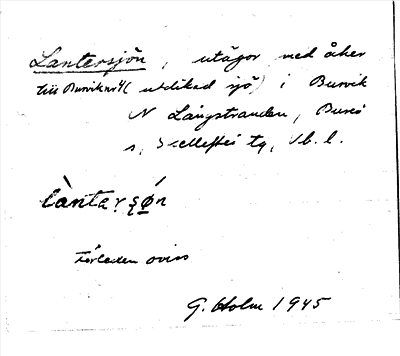 Lantersjön, utägor med åker
till Burvik nr 4 (utdikad sjö) i Burvik
N Långstranden, Bureå
s, Skellefteå tg, Vb. l.
làntaṛşǿn
Förleden oviss
G. Holm 1945